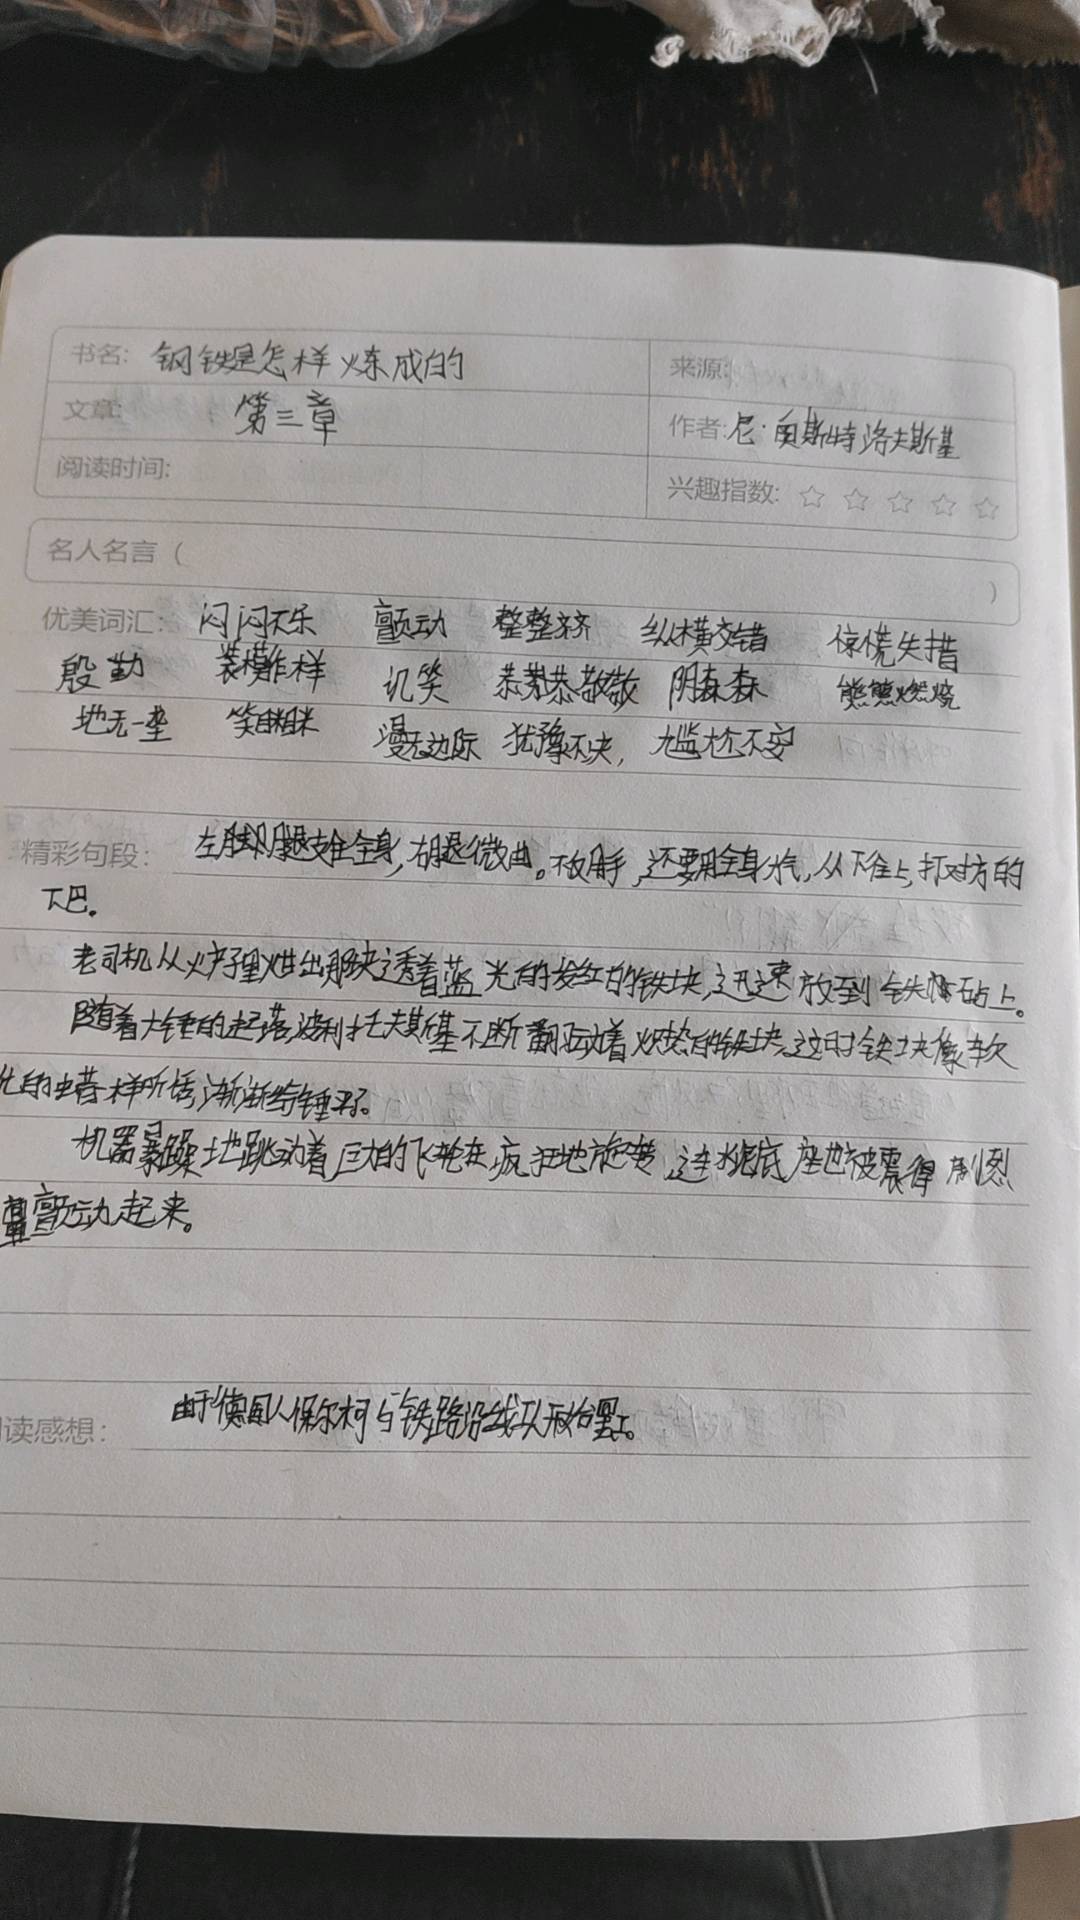 书名: 钢铁是怎样炼成的 来源:
文章: 第三章 作者: 尼·奥斯特洛夫斯基
阅读时间: 兴趣指数: ☆ ☆ ☆ ☆ ☆
名人名言 ( )
优美词汇: 闷闷不乐 颤动 整整齐齐 纵横交错 惊慌失措
殷勤 装模作样 讥笑 恭恭敬敬 阴森森 熊熊燃烧
地无一垄 笑眯眯 漫无边际 犹豫不决, 尴尬不安
精彩句段: 左脚腿支住全身,右腿微曲。不放手,还要用全身力气,从下往上,打对方的
下巴。
老司机从炉子里 出那块透着蓝光的发红的铁块,迅速放到铁 砧上。
随着大锤的起落,波利托夫斯基不断翻动着炽热的铁块,这时铁块像软
化的蜡一样 ,渐渐给锤平了。
机器暴躁地跳动着巨大的飞轮在疯狂地旋转,连水泥底座也被震得剧烈
颤动起来。
读感想: 由于德国人保尔柯 与铁路沿线 开始罢工。